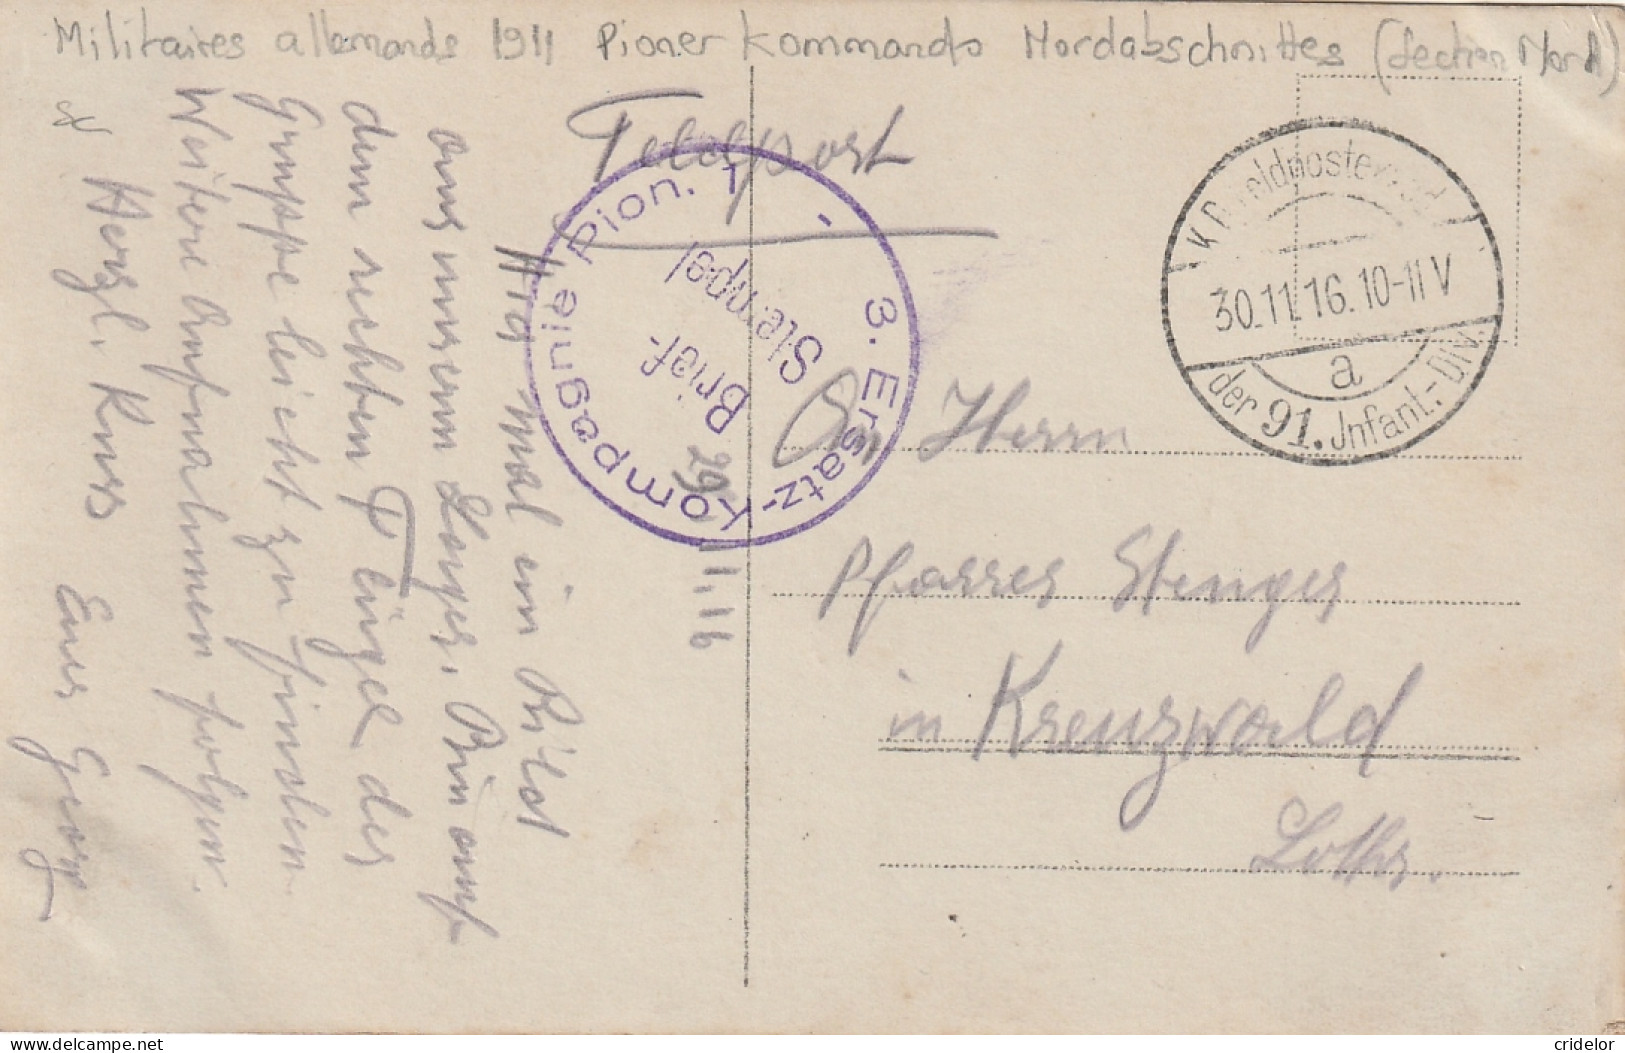 Militaires allemands 1911 Pioner Kommando Nordabschnittes (Section Nord)
Feldpost
3. Ersatz-Kompagnie Pion. 1 -
Brief-
Stempel
K.D. Feldpostexped.
30.11.16. 10-11 V
a
der 91. Jnfant.-Div.
29.11.16
Hier mal ein Bild
aus unserem Lager. Bin auf
dem rechten Flügel der
Gruppe leicht zu finden.
Weitere Aufnahmen folgen.
Herzl. Kuss Euer Georg
An Herrn
Pfarrer Stenger
in Kreuzwald
Lothr.
delcampe.net
cridelor